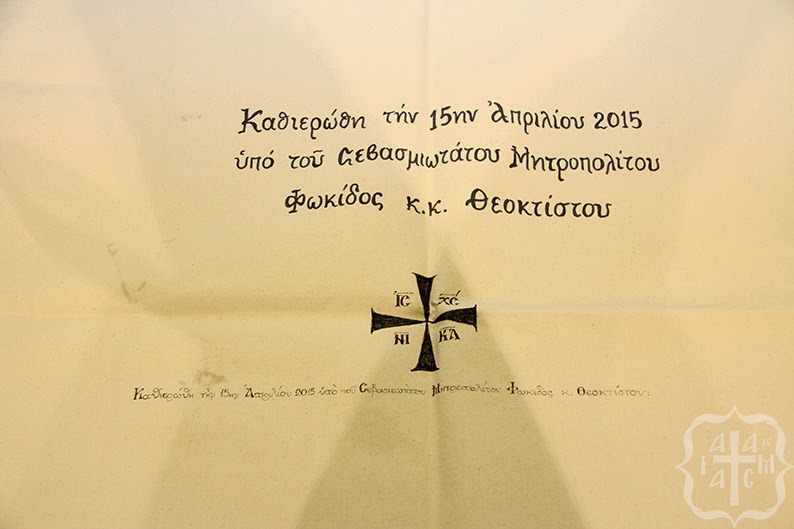 Καθιερώθη τήν 15ην Ἀπριλίου 2015
ὑπό τοῦ Σεβασμιωτάτου Μητροπολίτου
Φωκίδος κ.κ. Θεοκτίστου
ΙC ΧC
ΝΙ ΚΑ
Καθιερώθη τήν 15ην Ἀπριλίου 2015 ὑπό τοῦ Σεβασμιωτάτου Μητροπολίτου Φωκίδος κ. Θεοκτίστου:
Α Α Κ
Ι Μ
Α C